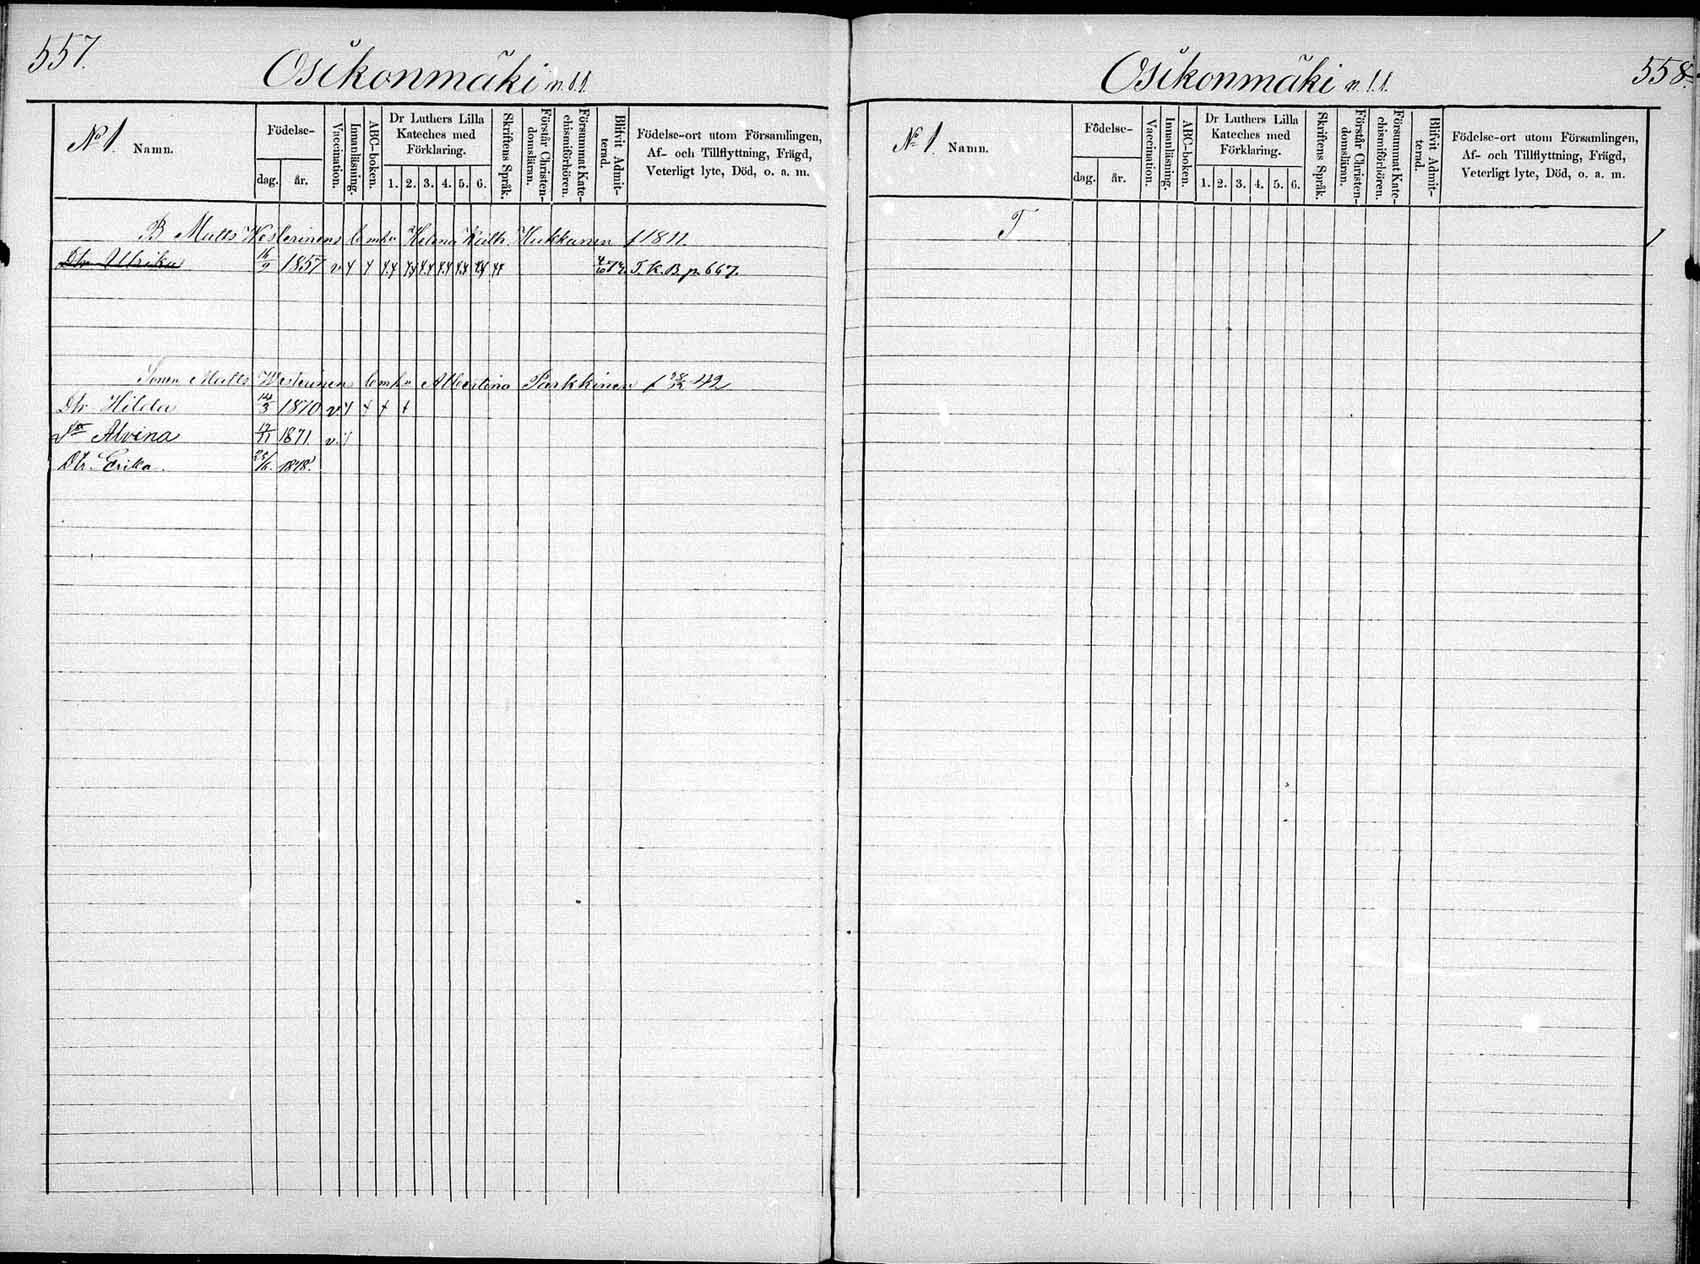 557.
Osikonmäki
No 1. Namn.
Födelse-
dag. år.
Vaccination.
Innanläsning.
ABC-boken.
Dr Luthers Lilla
Kateches med
Förklaring.
1. 2. 3. 4. 5. 6.
Skriftens Språk.
Förstår Christen-
domsläran.
Försummat Kate-
chismiförhören.
Blifvit Admit-
terad.
Födelse-ort utom Församlingen,
Af- och Tillflyttning, Frägd,
Veterligt lyte, Död, o. a. m.
B Matts Westerinens Helena Hukkanen f 1811.
Dtr Ulrika 16/9 1857 v T.K.B. p. 667.
Sonen Matts Albertina Parkkinen 42
Dtr Hilda 14/3 1870 v
Alvina 17/11 1871. v
Dtr Erika 1878.
558.
Osikonmäki
No 1. Namn.
Födelse-
dag. år.
Vaccination.
Innanläsning.
ABC-boken.
Dr Luthers Lilla
Kateches med
Förklaring.
1. 2. 3. 4. 5. 6.
Skriftens Språk.
Förstår Christen-
domsläran.
Försummat Kate-
chismiförhören.
Blifvit Admit-
terad.
Födelse-ort utom Församlingen,
Af- och Tillflyttning, Frägd,
Veterligt lyte, Död, o. a. m.
T